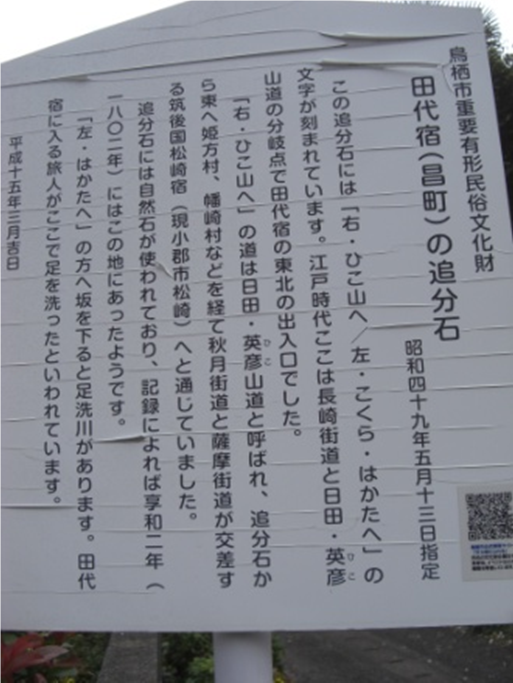 鳥栖市重要有形民俗文化財
田代宿（昌町）の追分石
昭和四十九年五月十三日指定
この追分石には「右・ひこ山へ／左・こくら・はかたへ」の
文字が刻まれています。江戸時代ここは長崎街道と日田・英彦
ひこ
山道の分岐点で田代宿の東北の出入口でした。
「右・ひこ山へ」の道は日田・英彦山道と呼ばれ、追分石か
ひこ
ら東へ姫方村、幡崎村などを経て秋月街道と薩摩街道が交差す
る筑後国松崎宿（現小郡市松崎）へと通じていました。
追分石には自然石が使われており、記録によれば享和二年（
一八〇二年）にはこの地にあったようです。
「左・はかたへ」の方へ坂を下ると足洗川があります。田代
宿に入る旅人がここで足を洗ったといわれています。
平成十五年三月吉日